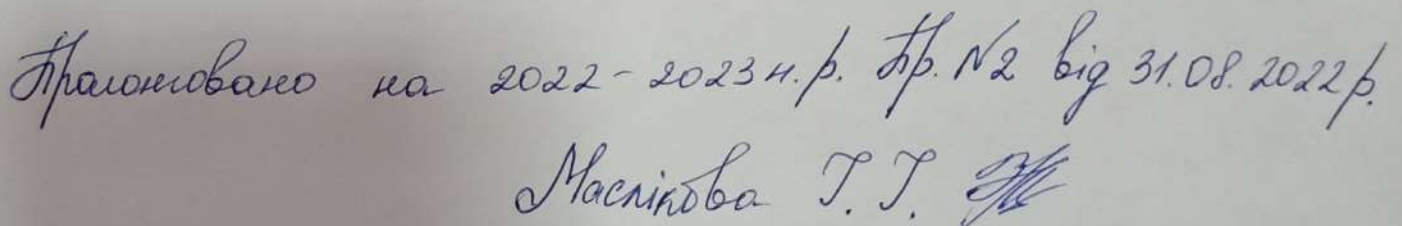 Пролонговано на 2022-2023 н.р. Пр. №2 від 31.08.2022р.
Маслікова Т.Т.